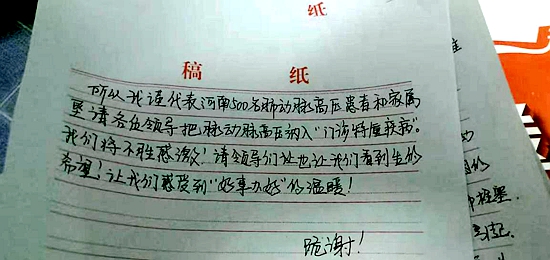 纸
稿 纸
所以我谨代表河南500名肺动脉高压患者和家属
恳请各位领导把肺动脉高压纳入"门诊特属疾病"。
我们将不胜感激！请领导们让也让我们看到生的
希望！让我们感受到"好事办好"的温暖！
跪谢！